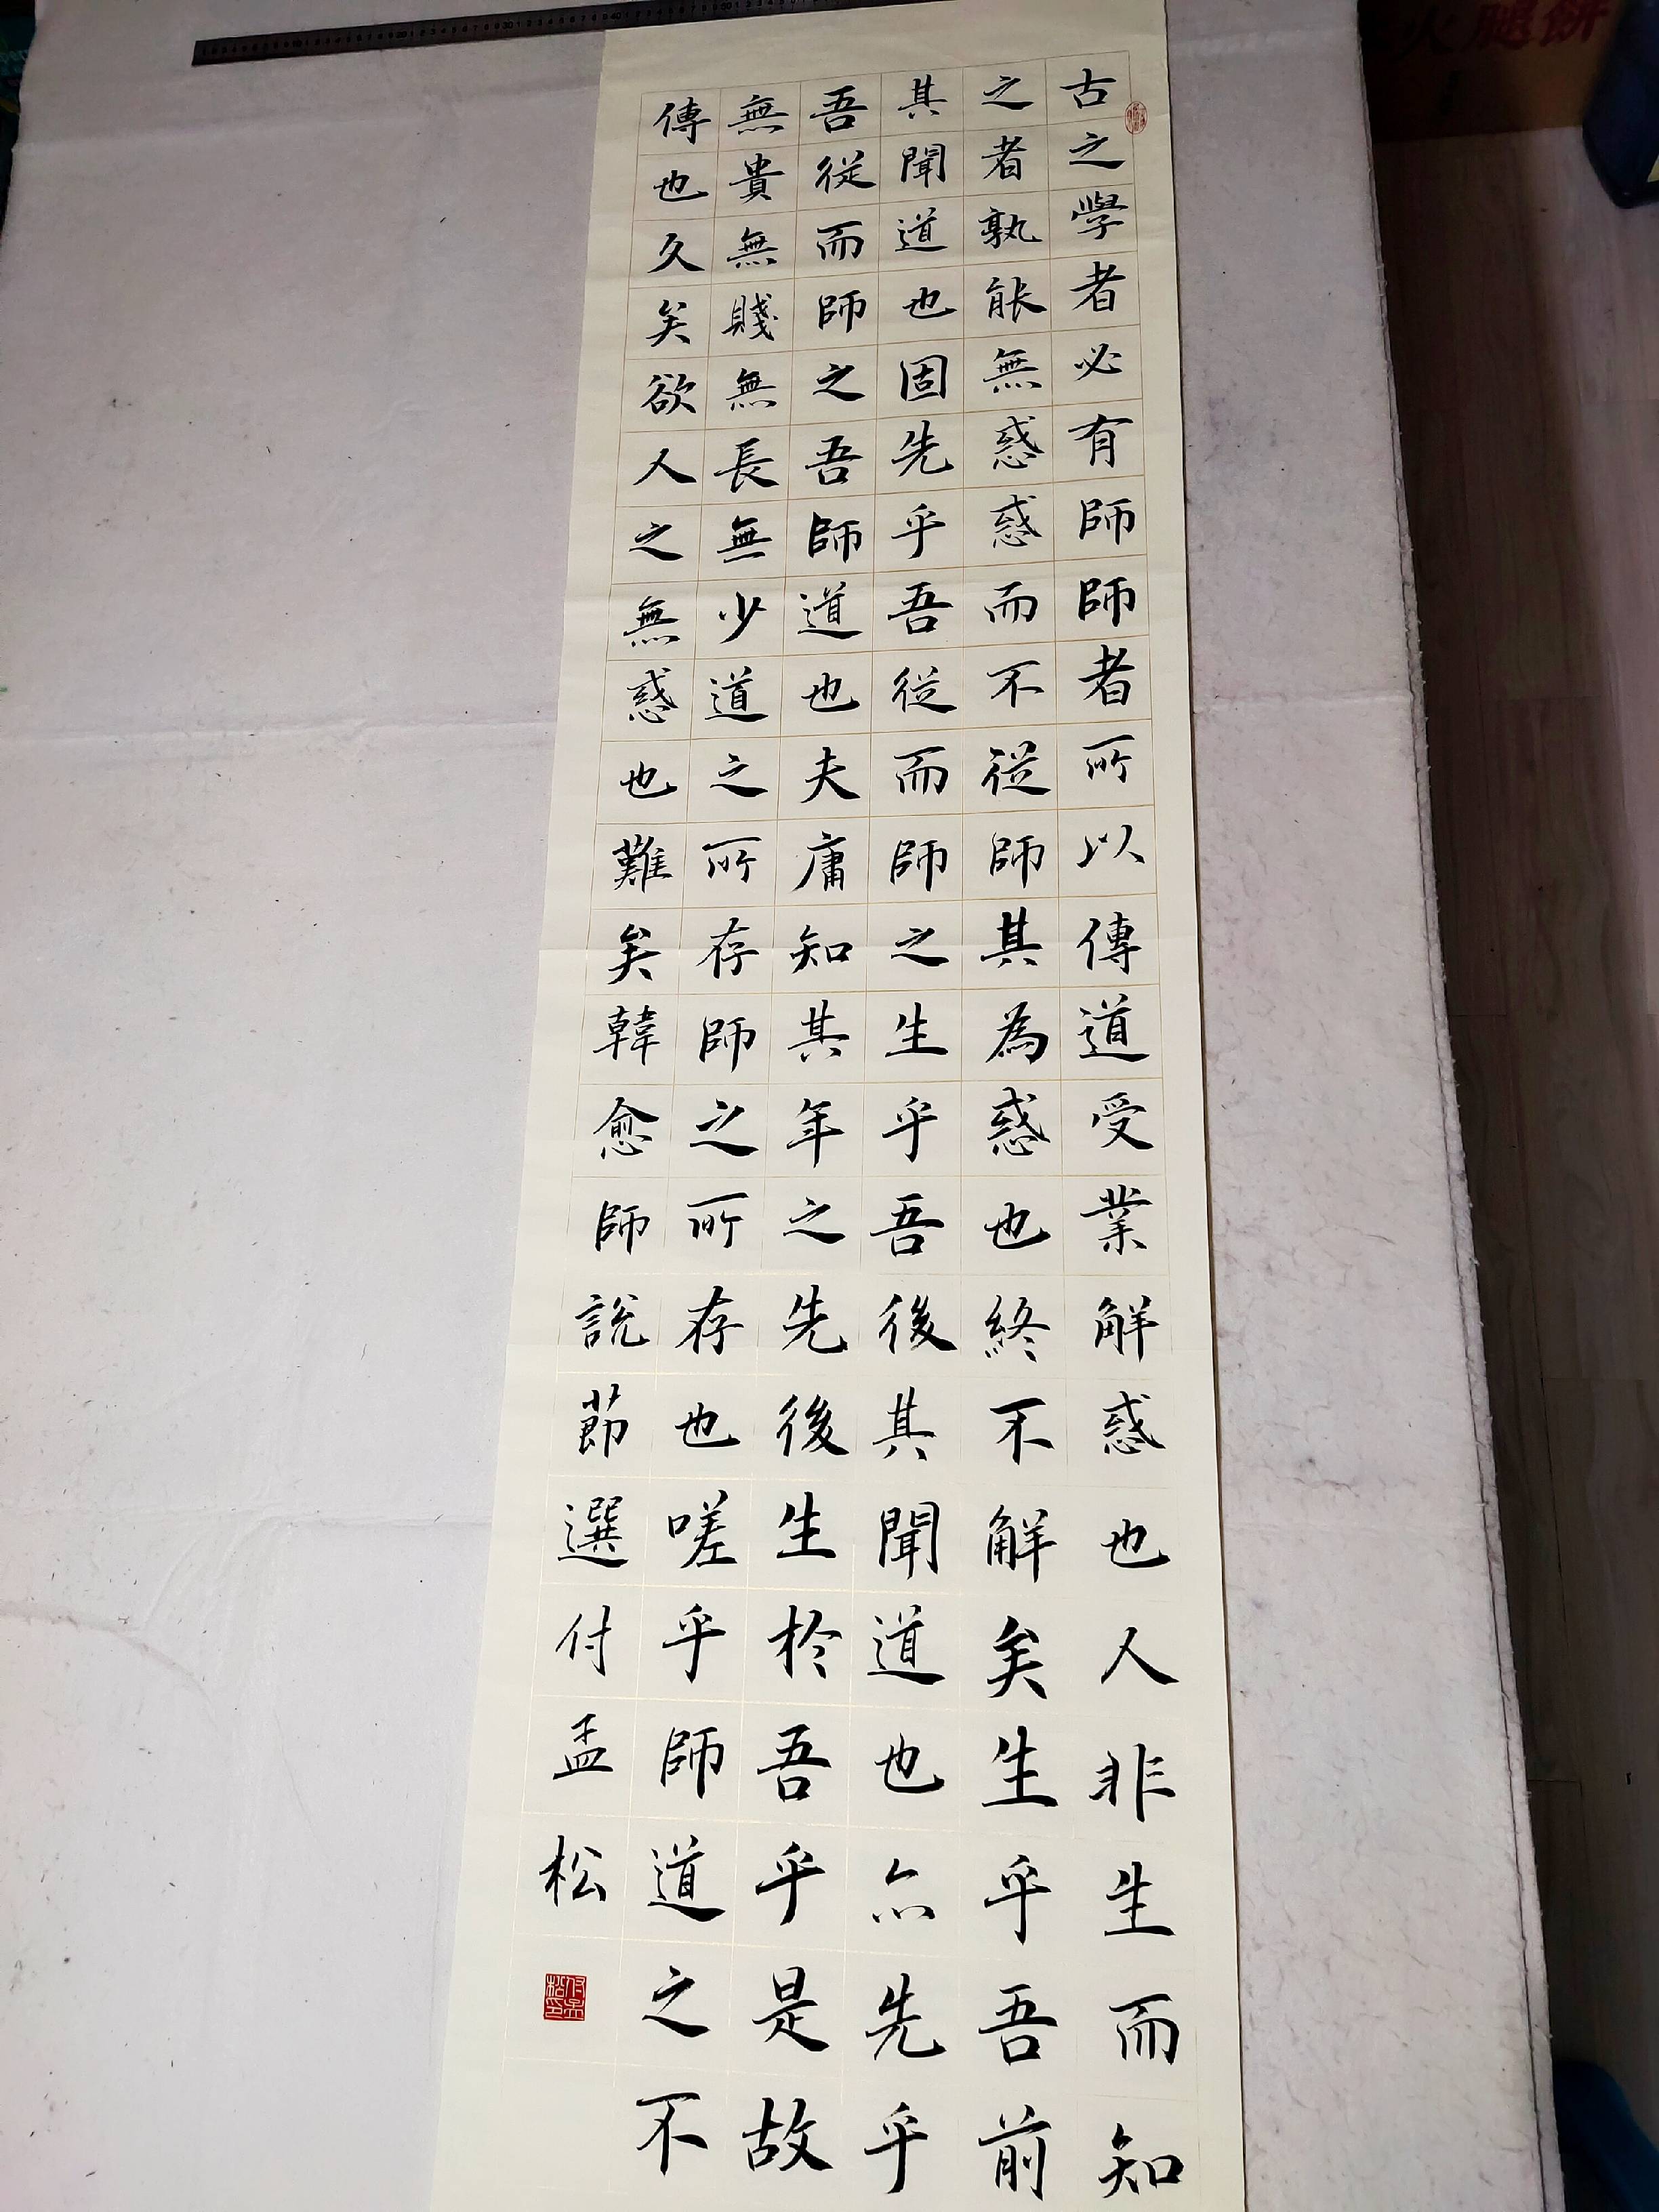 古之學者必有師師者所以傳道受業解惑也人非生而知
之者孰能無惑惑而不從師其為惑也終不解矣生乎吾前
其聞道也固先乎吾從而師之生乎吾後其聞道也亦先乎
吾從而師之吾師道也夫庸知其年之先後生於吾乎是故
無貴無賤無長無少道之所存師之所存也嗟乎師道之不
傳也久矣欲人之無惑也難矣韓愈師說節選付孟松
付孟松印
火腿餅